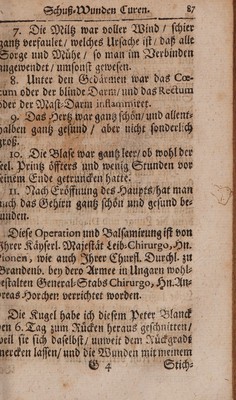 Schuß-Wunden Curen. 87
7. Die Miltz war voller Wind / schier
gantz verfaulet / welches Ursache ist / daß alle
Sorge und Mühe / so man im Verbinden
angewendet / umsonst gewesen.
8. Unter den Gedärmen war das Cœ-
cum oder der blinde Darm / und das Rectum
oder der Mast-Darm inflammiret.
9. Das Hertz war gantz schön / und allent-
halben gantz gesund / aber nicht sonderlich
groß.
10. Die Blase war gantz leer / ob wohl der
seel. Printz öffters und wenig Stunden vor
seinem Ende getruncken hatte.
11. Nach Eröffnung des Haupts / hat man
auch das Gehirn gantz schön und gesund be-
funden.
Diese Operation und Balsamirung ist von
Ihrer Käyserl. Majestät Leib-Chirurgo, Hn.
Pionen, wie auch Ihrer Churfl. Durchl. zu
Brandenb. bey dero Armee in Ungarn wohl-
gestalten General-Stabs Chirurgo, Hn. An-
dreas Horchen verrichtet worden.
Die Kugel habe ich diesem Peter Blanck
den 6. Tag zum Rücken heraus geschnitten /
weil sie sich daselbst / unweit dem Rückgradt
mercken lassen / und die Wunden mit meinem
G 4 Stich-